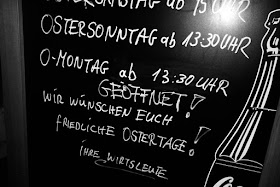 OSTERSONNTAG ab 13:30 UHR
O-MONTAG ab 13:30 UHR
GEÖFFNET!
WIR WÜNSCHEN EUCH
FRIEDLICHE OSTERTAGE!
IHRE WIRTSLEUTE